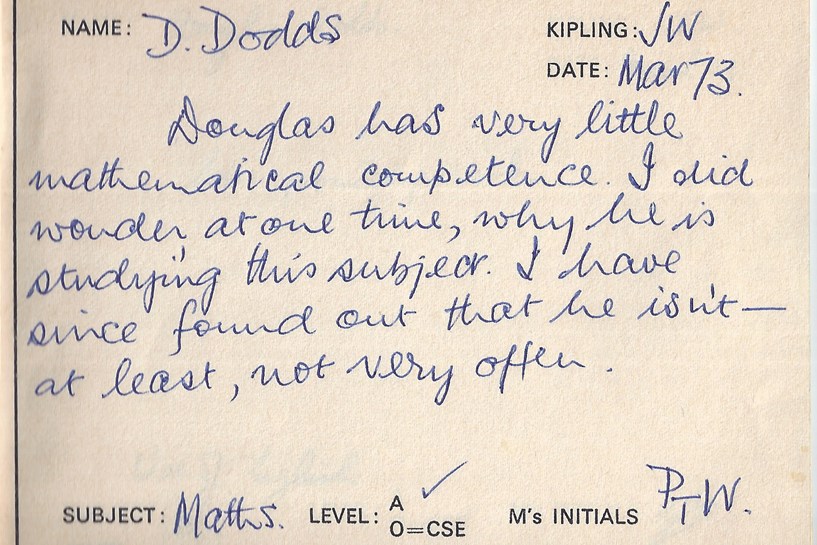 NAME: D. Dodds KIPLING: JW
DATE: Mar 73.
Douglas has very little
mathematical competence. I did
wonder at one time, why he is
studying this subject. I have
since found out that he isn't—
at least, not very often.
SUBJECT: Maths. LEVEL: A ✓
O=CSE M's INITIALS PTW.